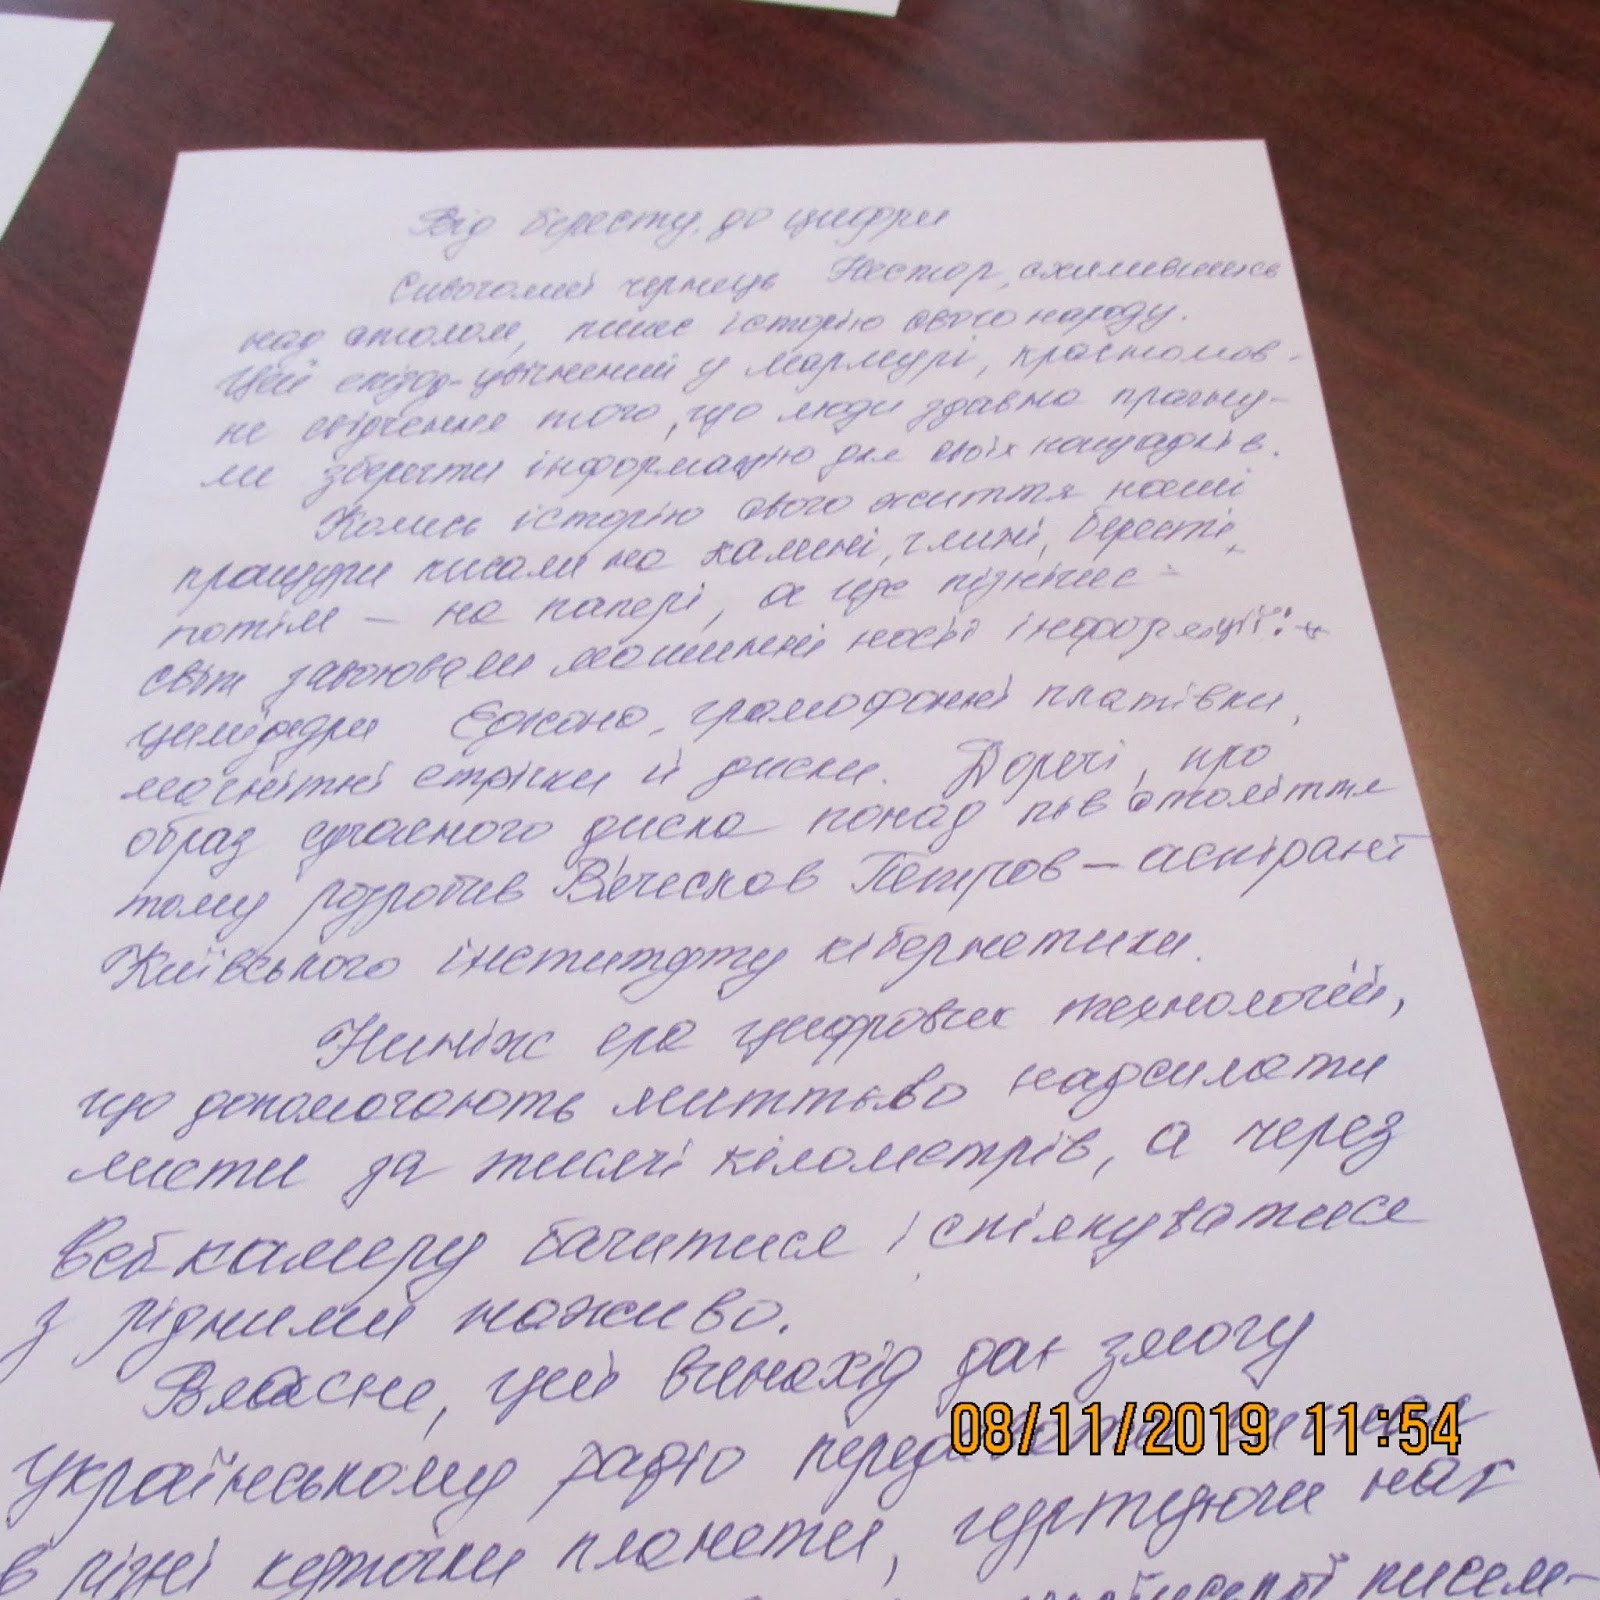 Від бересту до цифри
Сивочолий чернець Нестор, схилившись
над столом, пише історію свого народу.
Цей епізод-увічнений у мармурі, красномов-
не свідчення того, що люди здавна прагну-
ли зберегти інформацію для своїх нащадків.
Колись історію свого життя наші
пращури писали на камені, глині, бересті,
потім – на папері, а ще пізніше –
світ завоювали машинні носії інформації:
циліндри Едісона, грамофонні платівки,
магнітні стрічки й диски. До речі, про
образ сучасного диска понад пів століття
тому розробив Вячеслав Петров – аспірант
Київського інституту кібернетики.
Нині ж ера цифрових технологій,
що допомагають миттєво надсилати
листи за тисячі кілометрів, а через
вебкамеру бачитися і спілкуватися
з рідними наживо.
Власне, цей винахід дає змогу
Українському радіо
в різні куточки планети, гуртуючи нас
писем-
08/11/2019 11:54